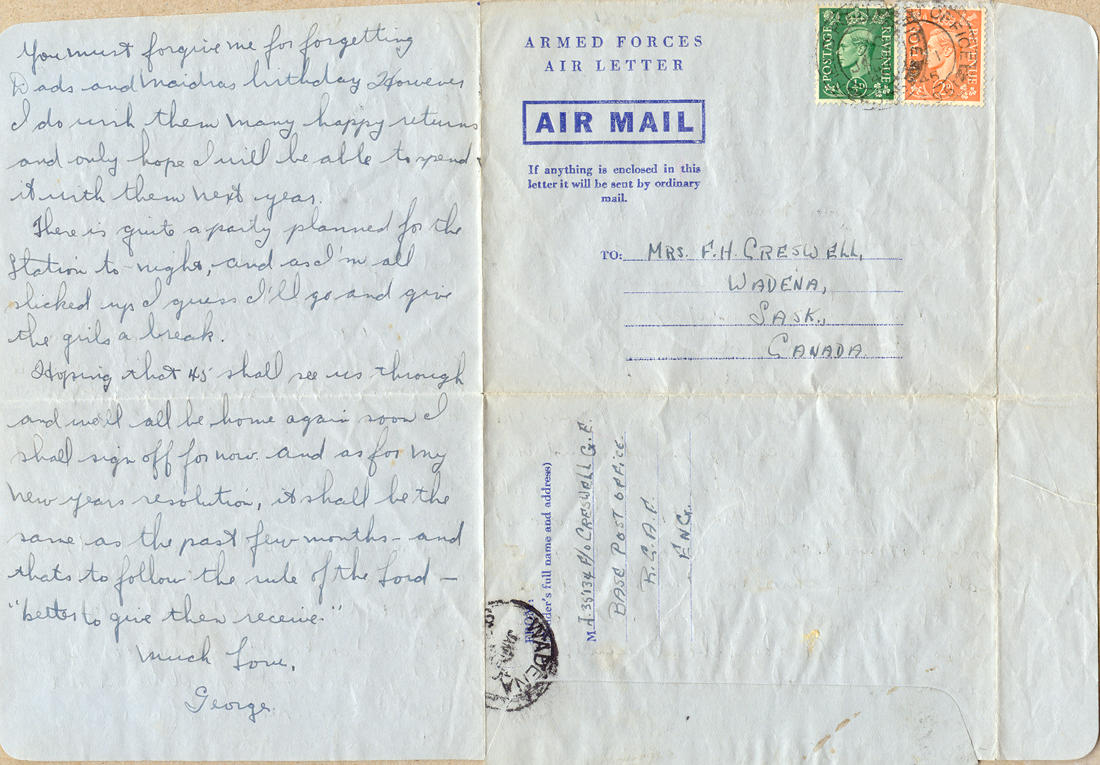 You must forgive me for forgetting
Dads and Naidras birthday However
I do wish them many happy returns
and only hope I will be able to spend
it with them next year.
There is quite a party planned for the
Station to-night, and as I'm all
slicked up I guess I'll go and give
the girls a break.
Hoping that 45 shall see us through
and we'll all be home again soon I
shall sign off for now. And as for my
New years resolution, it shall be the
same as the past few months - and
thats to follow the rule of the Lord -
"better to give then receive."
Much Love,
George.
ARMED FORCES
AIR LETTER
AIR MAIL
If anything is enclosed in this
letter it will be sent by ordinary
mail.
POSTAGE REVENUE
REVENUE
OFFICE
TO: MRS. F.H. CRESWELL,
WADENA,
SASK.,
CANADA.
(Sender's full name and address)
J.35134 P/O CRESWELL G.F.
BASE POST OFFICE
R.C.A.F.
ENG.
WADENA
JAN